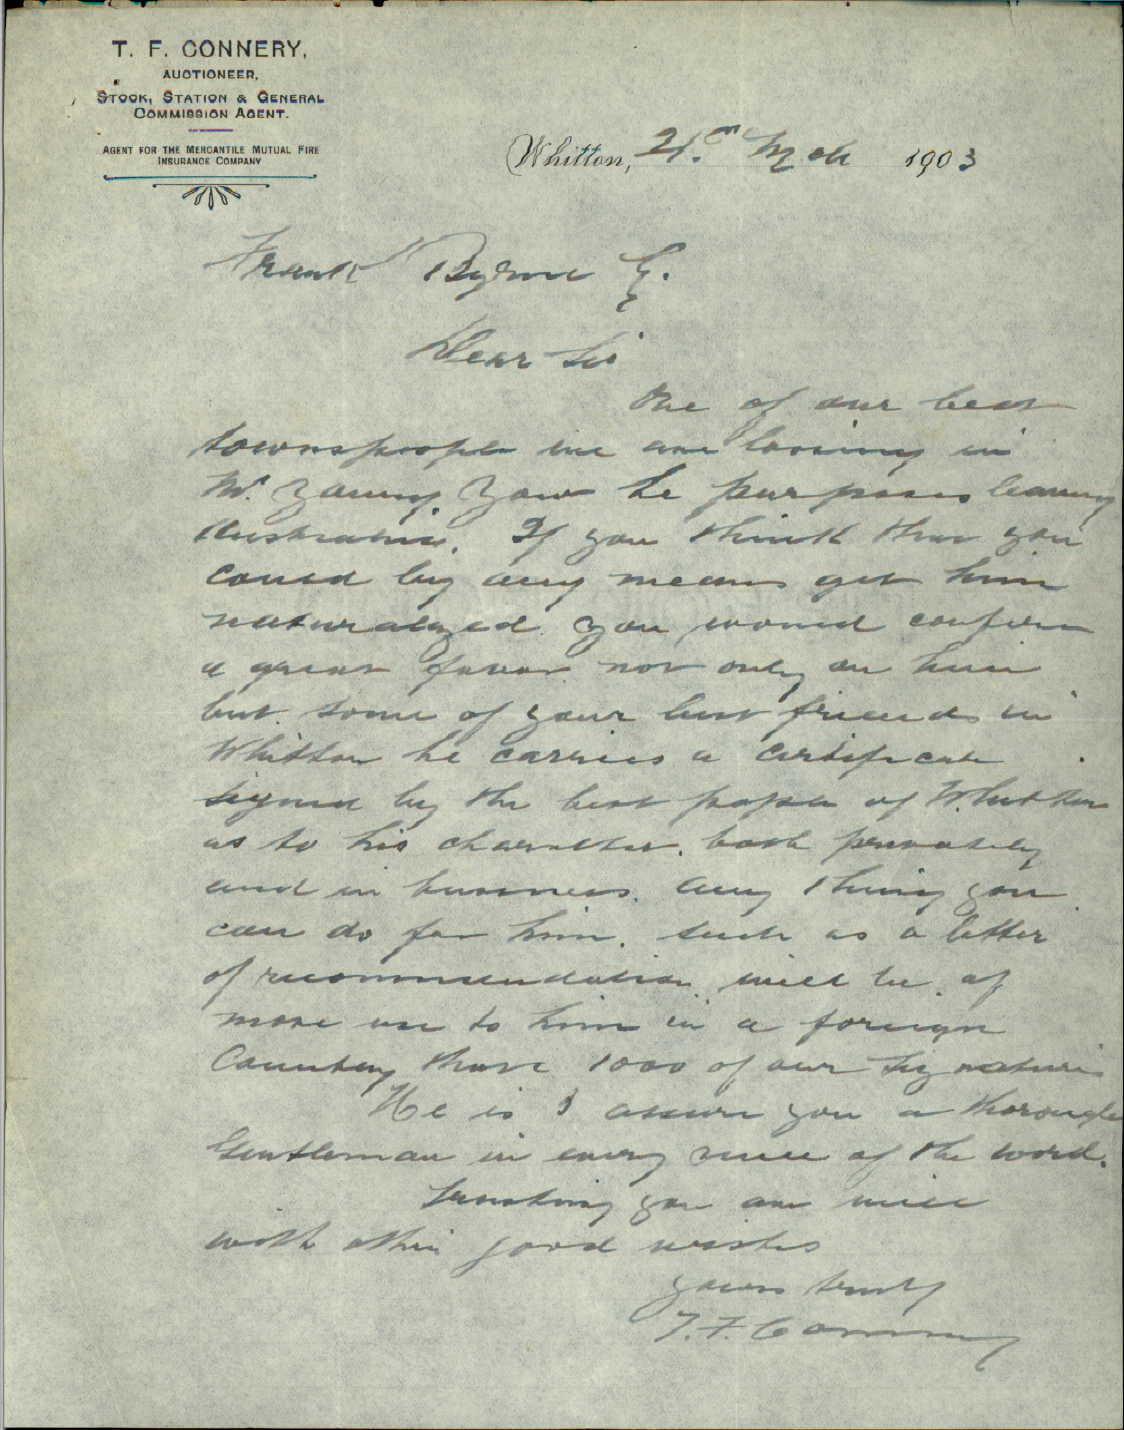 T. F. CONNERY,
AUCTIONEER,
STOCK, STATION & GENERAL
COMMISSION AGENT.
AGENT FOR THE MERCANTILE MUTUAL FIRE
INSURANCE COMPANY
Whitton, 21. Mch 1903
Frank Byrne
Dear Sir
One of our best
townspeople we are loosing in
Mr. Young Yow he purposes leaving
Australia. If you think that you
could by any means get him
naturalized you would confer
a great favor not only on him
but some of your best friends in
Whitton he carries a certificate
signed by the best people of Whitton
as to his character. both privately
and in business. Any thing you
can do for him. such as a letter
of recommendation will be of
more use to him in a foreign
Country than 1000 of our signatures
He is I assure you a thorough
Gentleman in every sense of the word.
Trusting you are well
with good wishes
yours truly
T. F. Connery